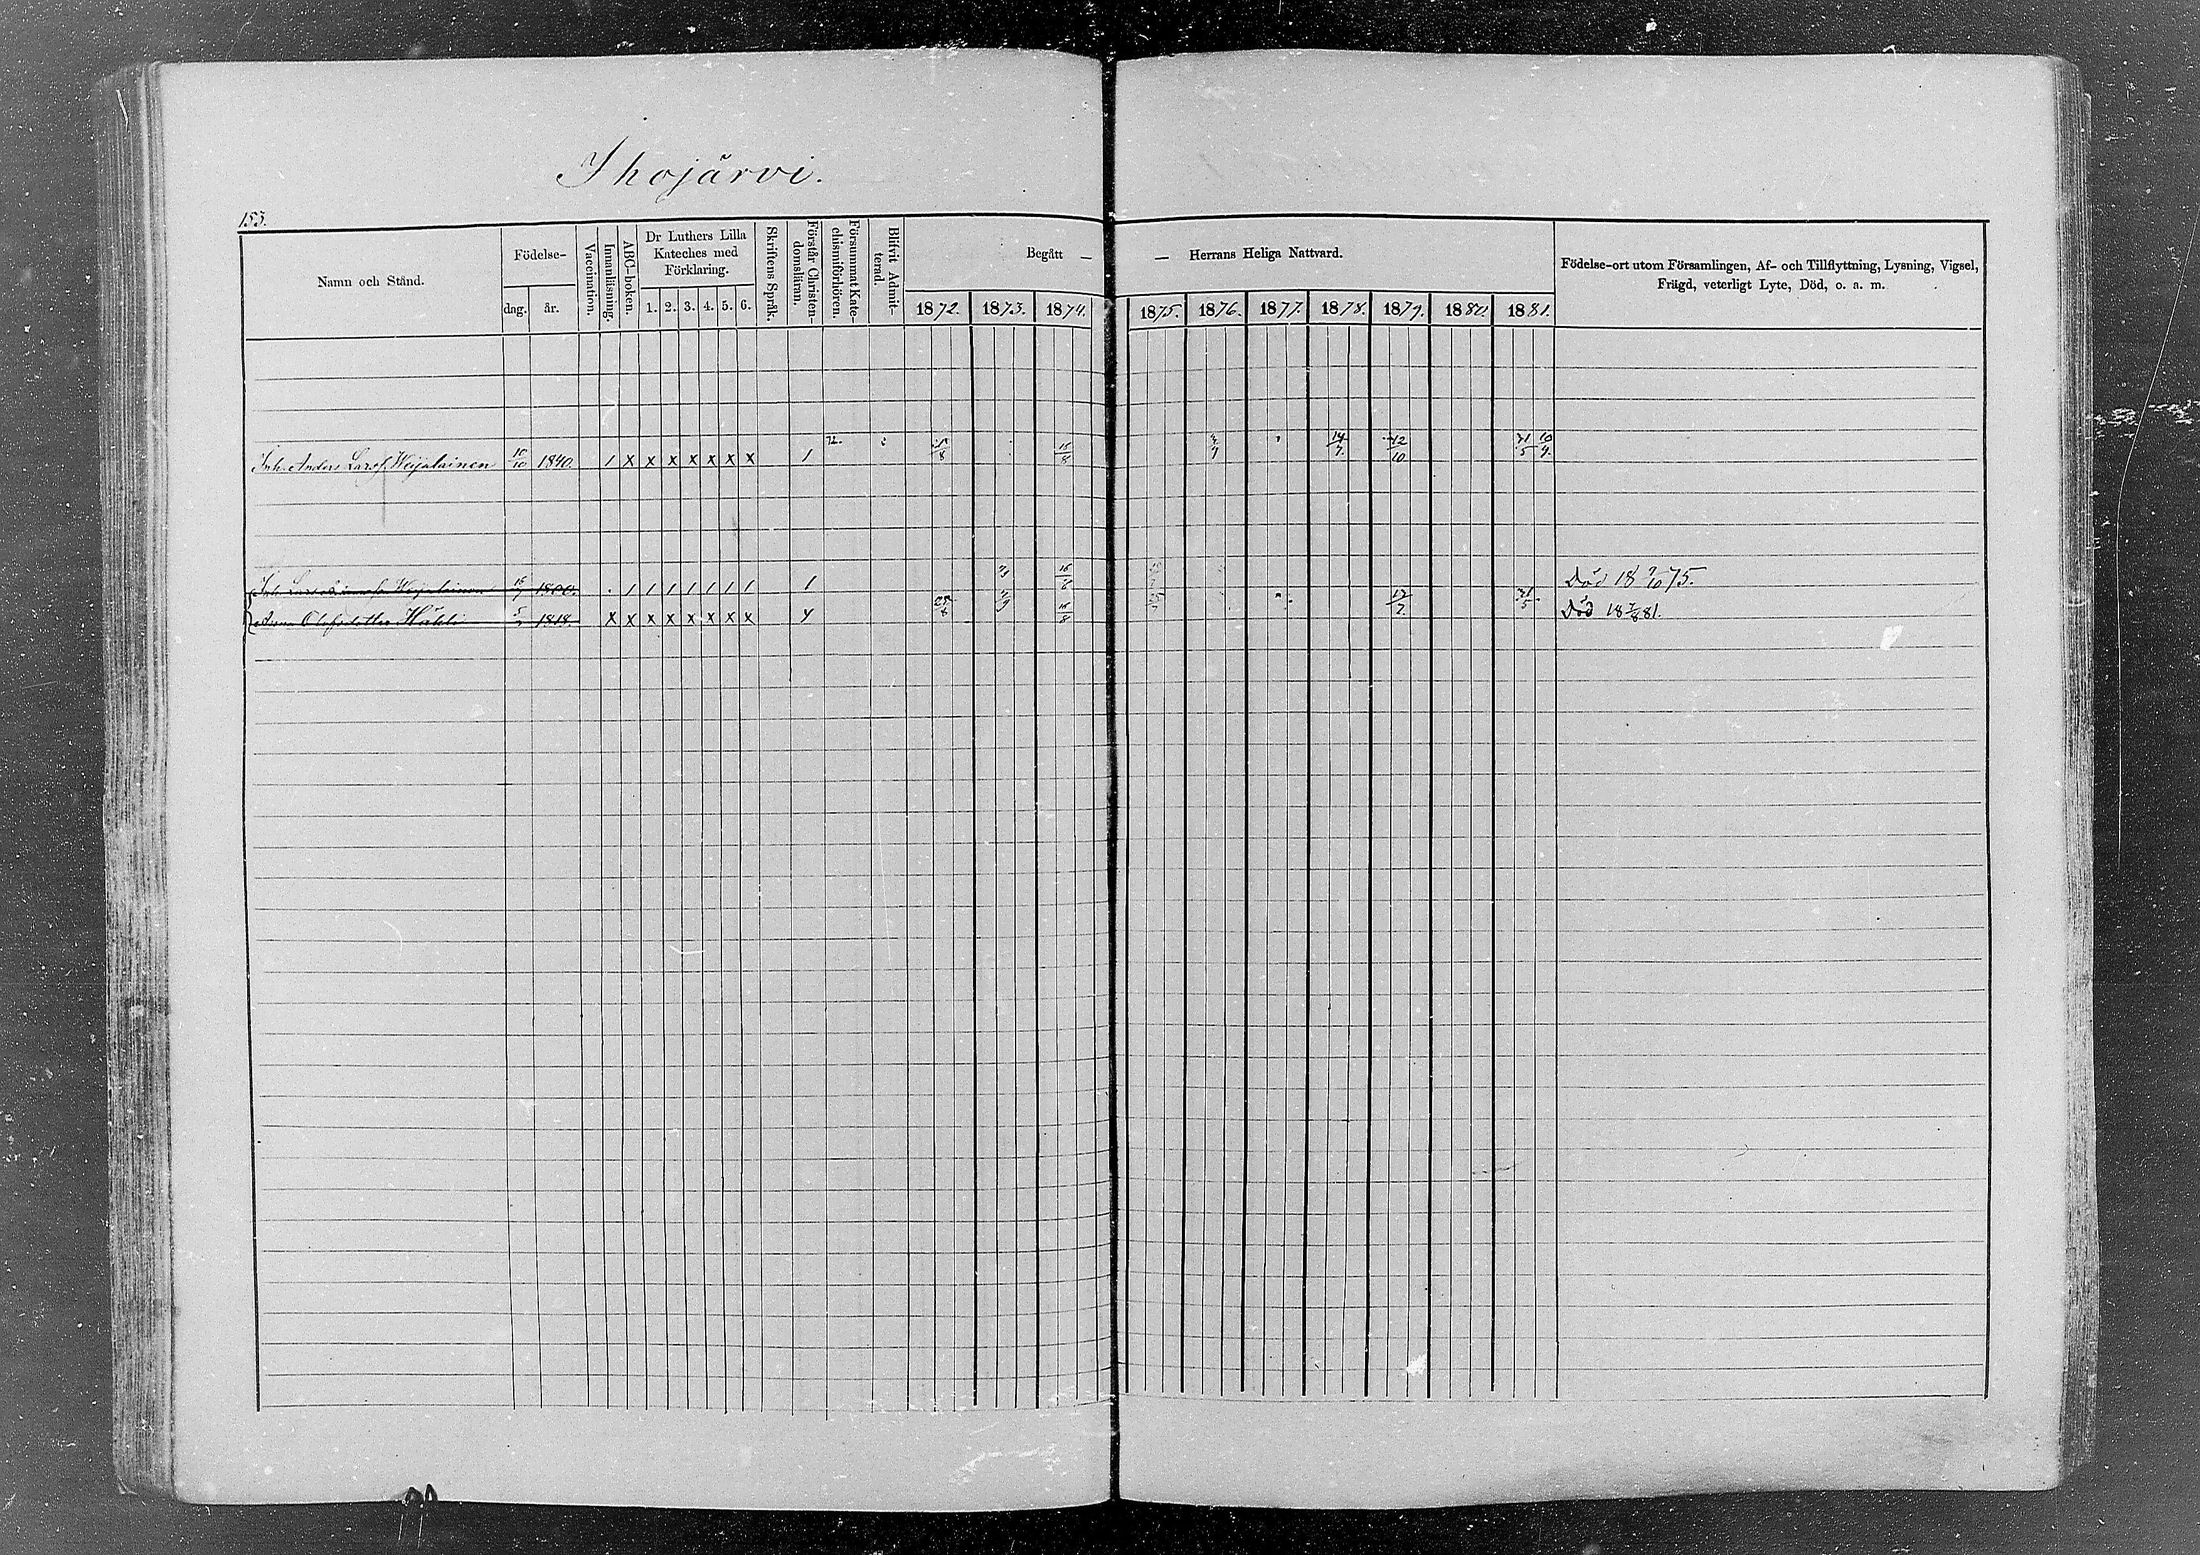 Ihojärvi.
153.
Namn och Stånd.
Födelse-
dag.
år.
Vaccination.
Innanläsning.
ABC-boken.
Dr Luthers Lilla
Kateches med
Förklaring.
1. 2. 3. 4. 5. 6.
Skriftens Språk.
Förstår Christen-
domsläran.
Försummat Kate-
chismiförhören.
Blifvit Admit-
terad.
Begått —
— Herrans Heliga Nattvard.
1872. 1873. 1874. 1875. 1876. 1877. 1878. 1879. 1880 1881.
Födelse-ort utom Församlingen, Af- och Tillflyttning, Lysning, Vigsel,
Frägd, veterligt Lyte, Död, o. a. m.
Inh. Anders Larsf. Weijalainen 10/10 1840. 1 x x x x x x x 1 72. 15/8 14/7. 12/10 31/5 10/9.
Inh. Lars Weijalainen 1800. 1 1 1 1 1 1 1 1 Död 18 7/10 75.
Anna Olofsdotter Hähli 1818. x x x x x x x x 4 15/8 31/5 Död 18 7/8 81.